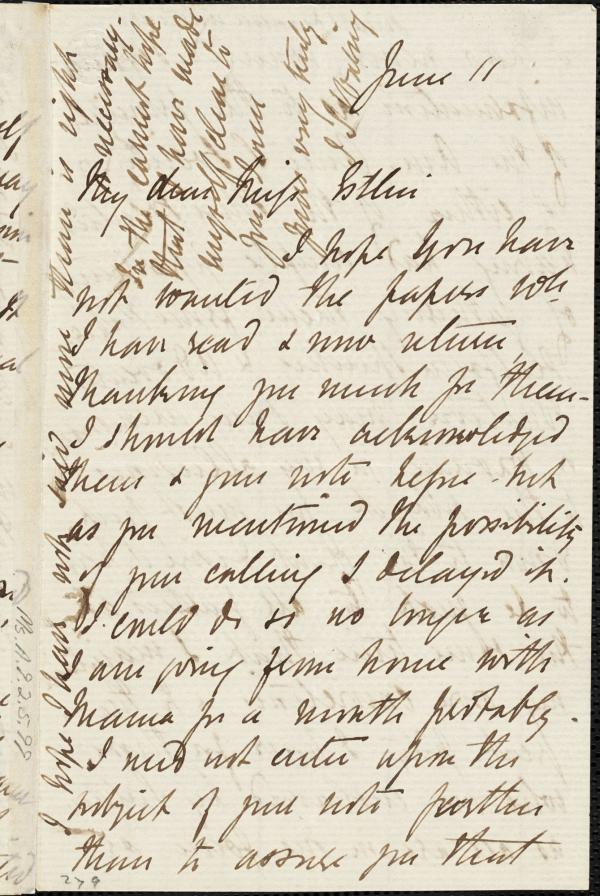 June 11
My dear Miss Estlin
I hope you have
not wanted the papers wh.
I have read & now return,
thanking you much for them -
I should have acknowledged
them & your note before - but
as you mentioned the possibility
of your calling I delayed it.
I could do so no longer as
I am going from home with
Mama for a month probably.
I need not enter upon the
subject of your note further
than to assure you that
I hope I have not said more than is right
& necessary.
In the earnest hope
that I have made
myself clear to
you
Yours very truly
Ms.A.9.2.5.99
279